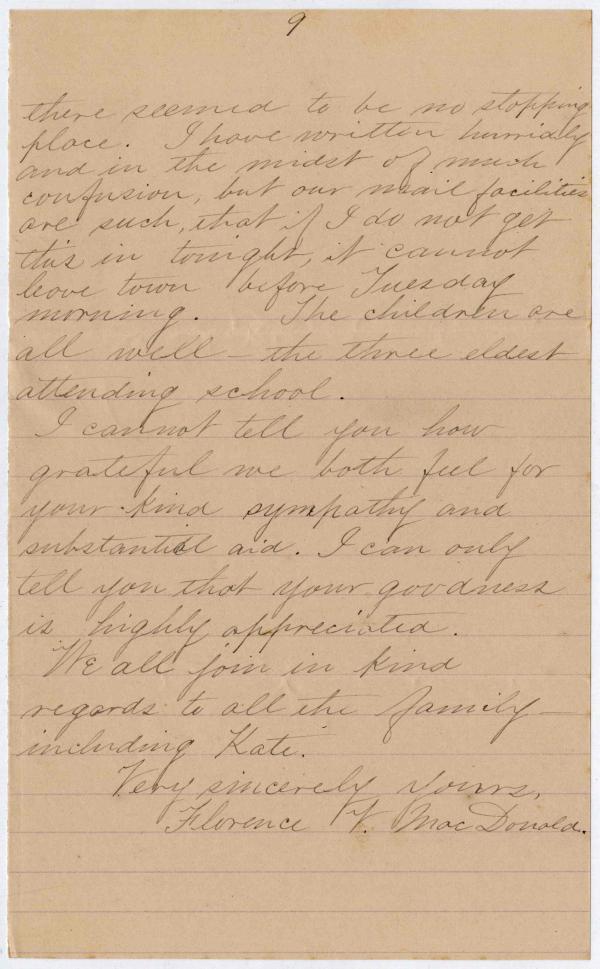 9
there seemed to be no stopping
place. I have written hurriedly
and in the midst of much
confusion, but our mail facilities
are such, that if I do not get
this in tonight, it cannot
leave town before Tuesday
morning. The children are
all well – the three eldest
attending school.
I cannot tell you how
grateful we both feel for
your kind sympathy and
substantial aid. I can only
tell you that your goodness
is highly appreciated.
We all join in kind
regards to all the family –
including Kate.
Very sincerely yours,
Florence V. MacDonald.